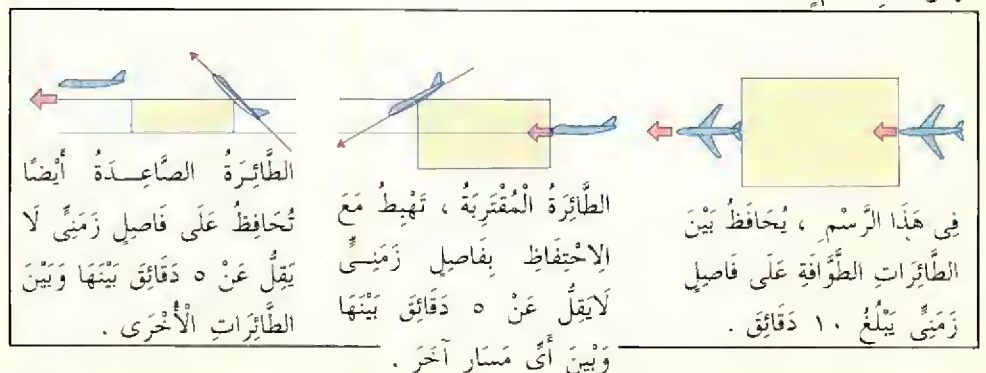 فِى هَذَا الرَّسْمِ ، يُحَافَظُ بَيْنَ
الطَّائِرَاتِ الطَّوَّافَةِ عَلَى فَاصِلٍ
زَمَنِىٍّ يَبْلُغُ ١٠ دَقَائِقَ .
الطَّائِرَةُ الْمُقْتَرِبَةُ ، تَهْبِطُ مَعَ
الِاحْتِفَاظِ بِفَاصِلٍ زَمَنِىٍّ
لَايَقِلُّ عَنْ ٥ دَقَائِقَ بَيْنَهَا
وَبَيْنَ أَىِّ مَسَارٍ آخَرَ .
الطَّائِرَةُ الصَّاعِدَةُ أَيْضًا
تُحَافِظُ عَلَى فَاصِلٍ زَمَنِىٍّ لَا
يَقِلُّ عَنْ ٥ دَقَائِقَ بَيْنَهَا وَبَيْنَ
الطَّائِرَاتِ الْأُخْرَى .